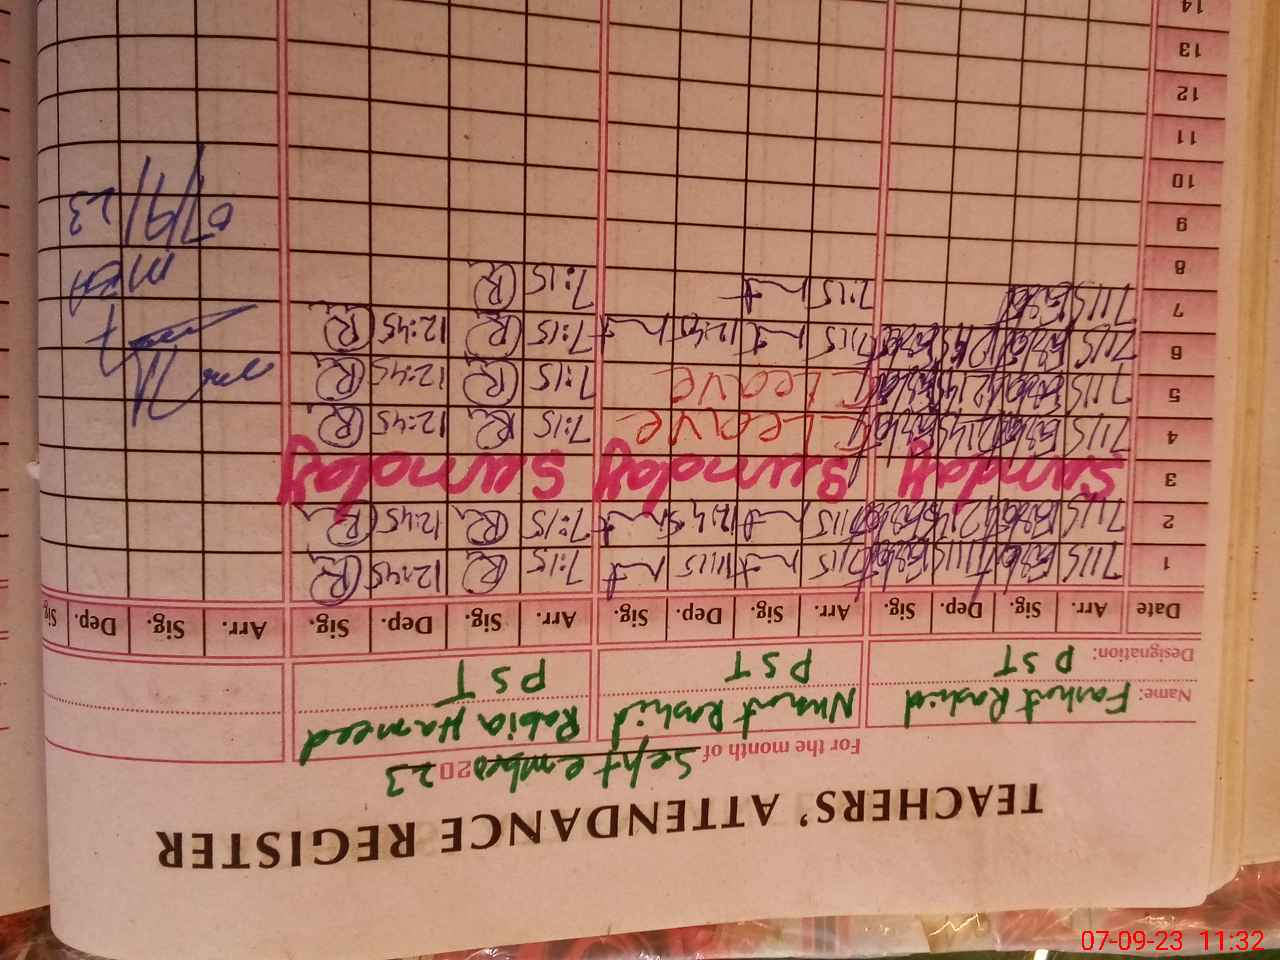 TEACHERS' ATTENDANCE REGISTER
For the month of September 2023
Name: Farhat Rashid Nusrat Rashid Rabia Hameed
Designation: PST PST PST
Date Arr. Sig. Dep. Sig. Arr. Sig. Dep. Sig. Arr. Sig. Dep. Sig. Arr. Sig. Dep. Sig.
1 7:15 11:15 7:15 11:15 7:15 R 12:45 R
2 7:15 12:45 7:15 12:45 7:15 R 12:45 R
3 Sunday Sunday Sunday
4 7:15 12:45 C Leave 7:15 R 12:45 R
5 7:15 12:45 C Leave 7:15 R 12:45 R
6 7:15 12:45 7:15 12:45 7:15 R 12:45 R
7 7:15 7:15 7:15 R
8 MEA
9 07/9/23
10
11
12
13
14
07-09-23 11:32